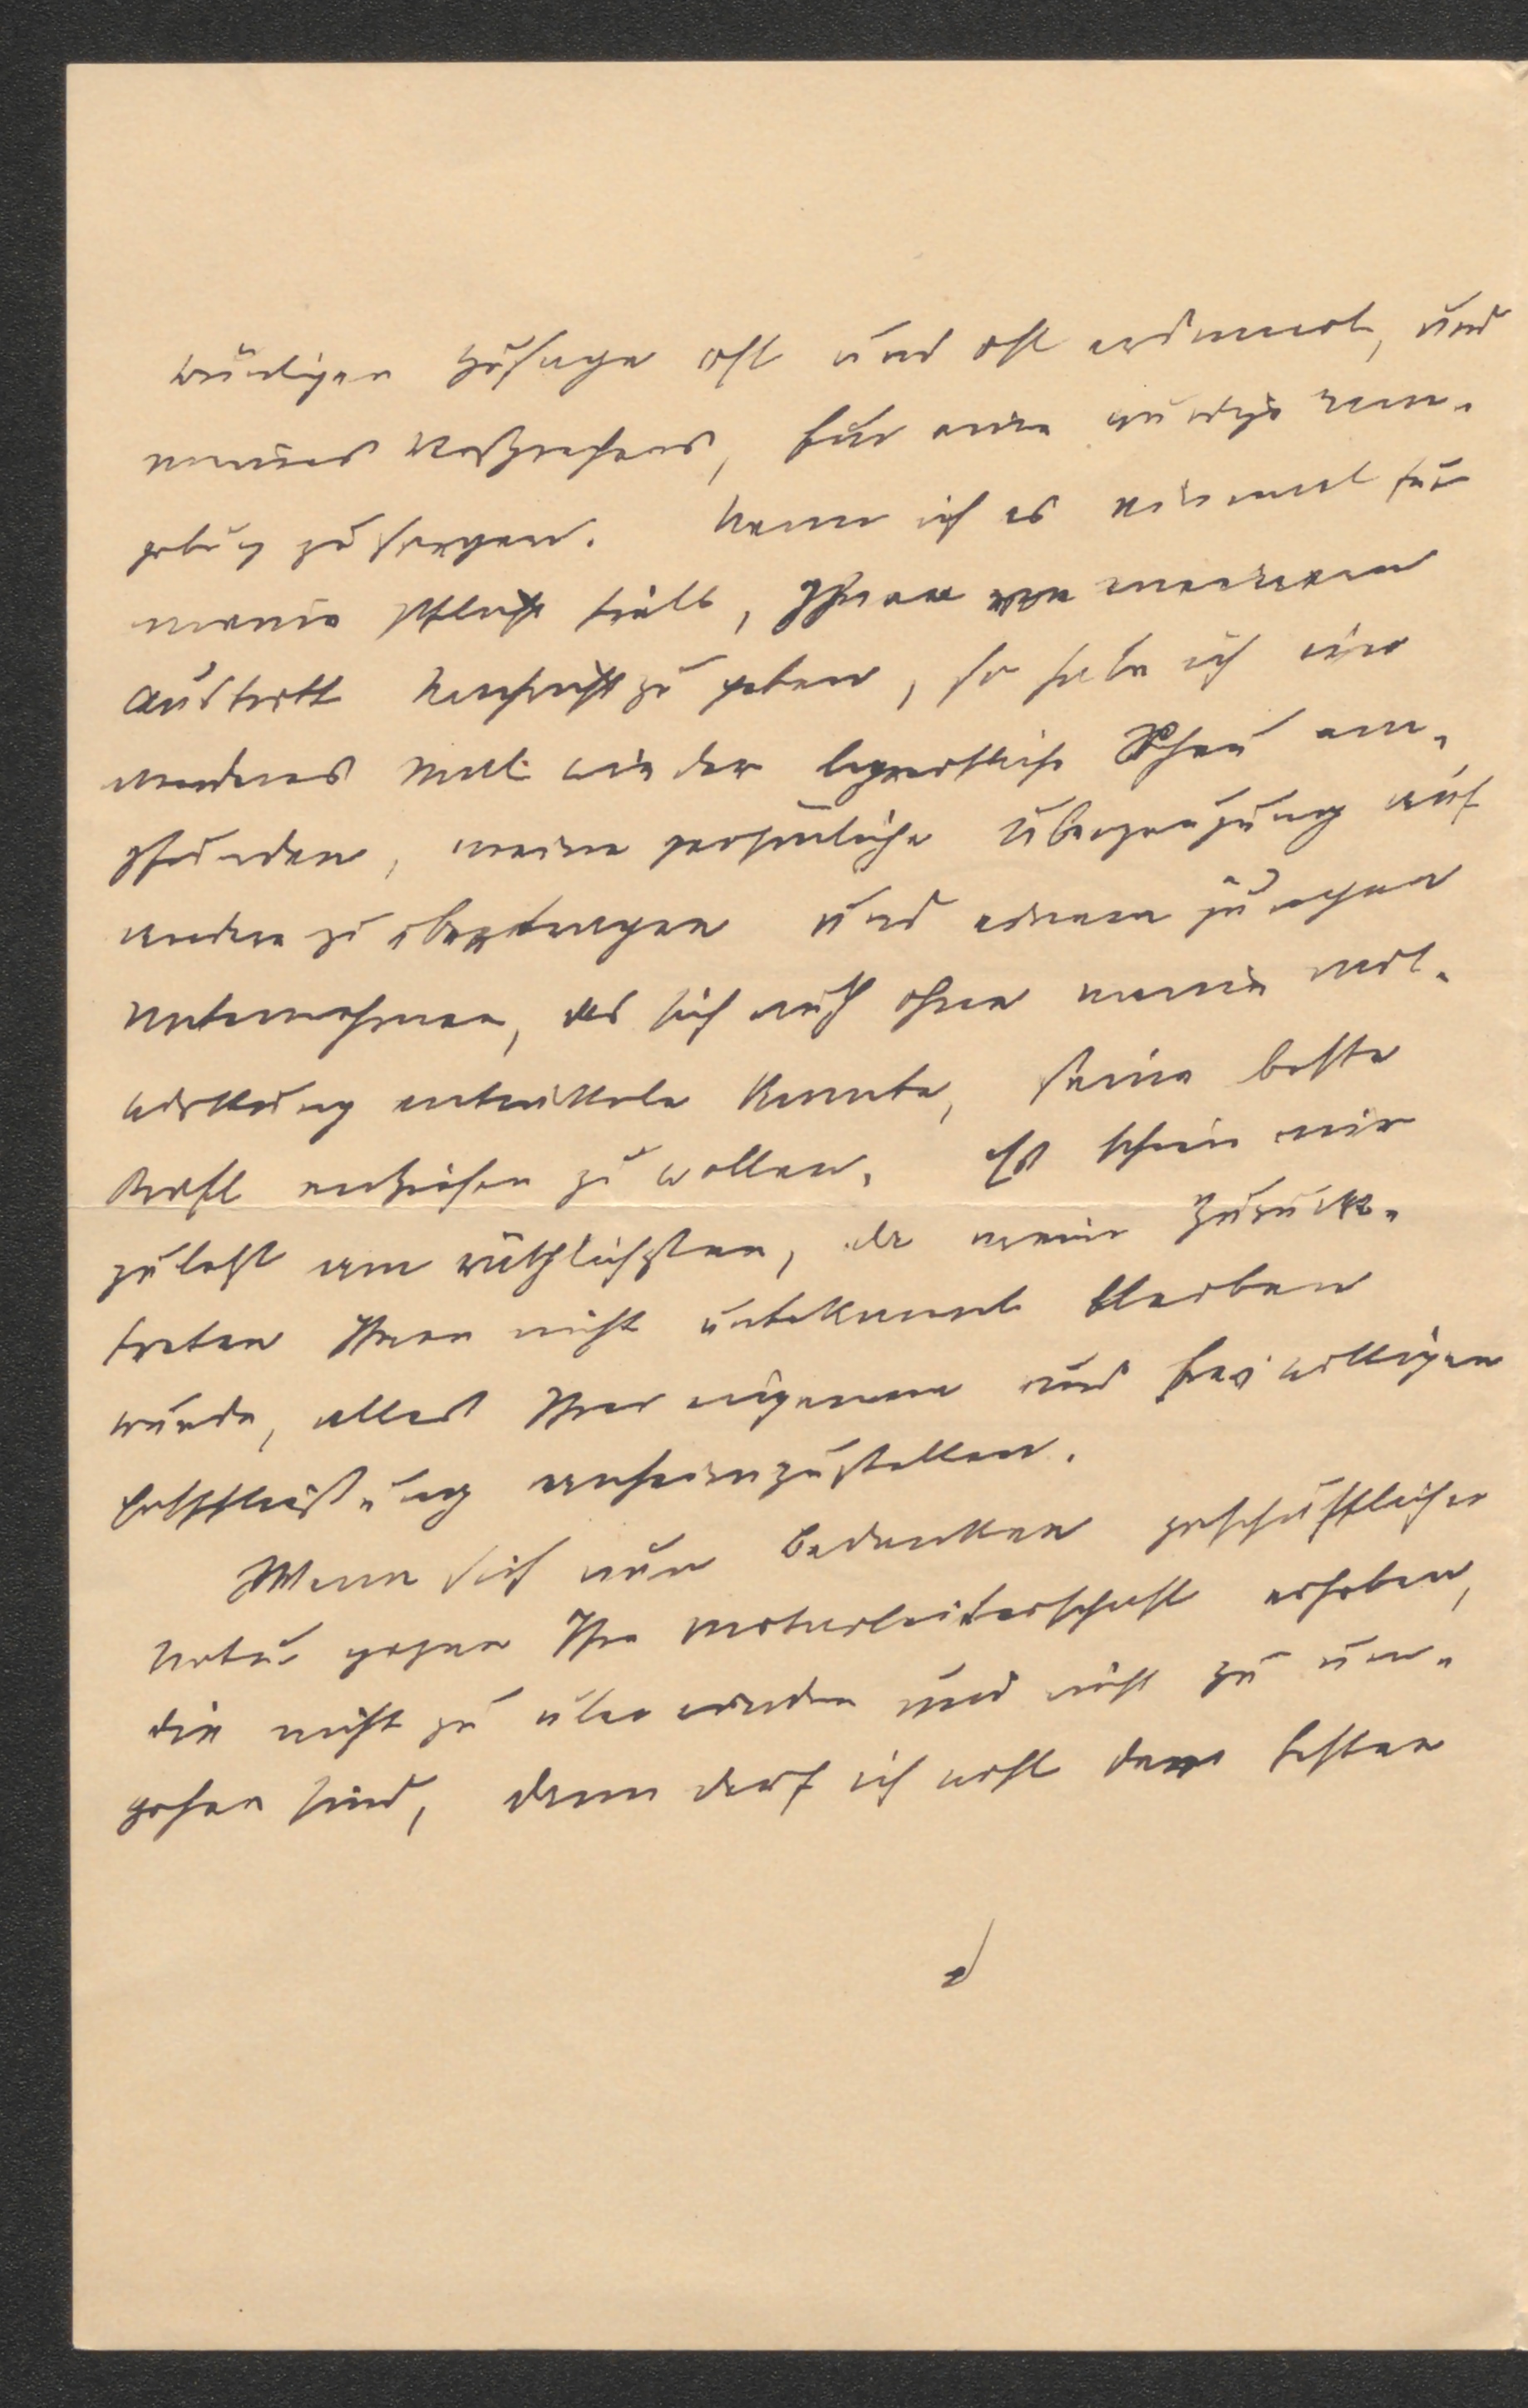 würdigen Zusage oft und oft erinnert, und
meines Versprechens, für eine würdige Um-
gebung zu sorgen. Wenn ich es einmal für
meine Pflicht hielt, Ihnen von meinem
Austritt Nachricht zu geben, so habe ich ein
anderes Mal wieder begreifliche Scheu em-
pfunden, meine persönliche Überzeugung auf
andere zu übertragen und einem jungen
Unternehmen, das sich auch ohne meine Mit-
wirkung entwickeln konnte, seine beste
Kraft entziehen zu wollen. Es schien mir
zuletzt am räthlichsten, da mein Zurück-
treten Ihnen nicht unbekannt bleiben
würde, alles Ihrer eigenen und freiwilligen
Entschließung anheimzustellen.
Wenn sich nun Bedenken geschäftlicher
Natur gegen Ihre Mitarbeiterschaft erheben,
die nicht zu überwinden und nicht zu um-
gehen sind, dann darf ich wohl den besten